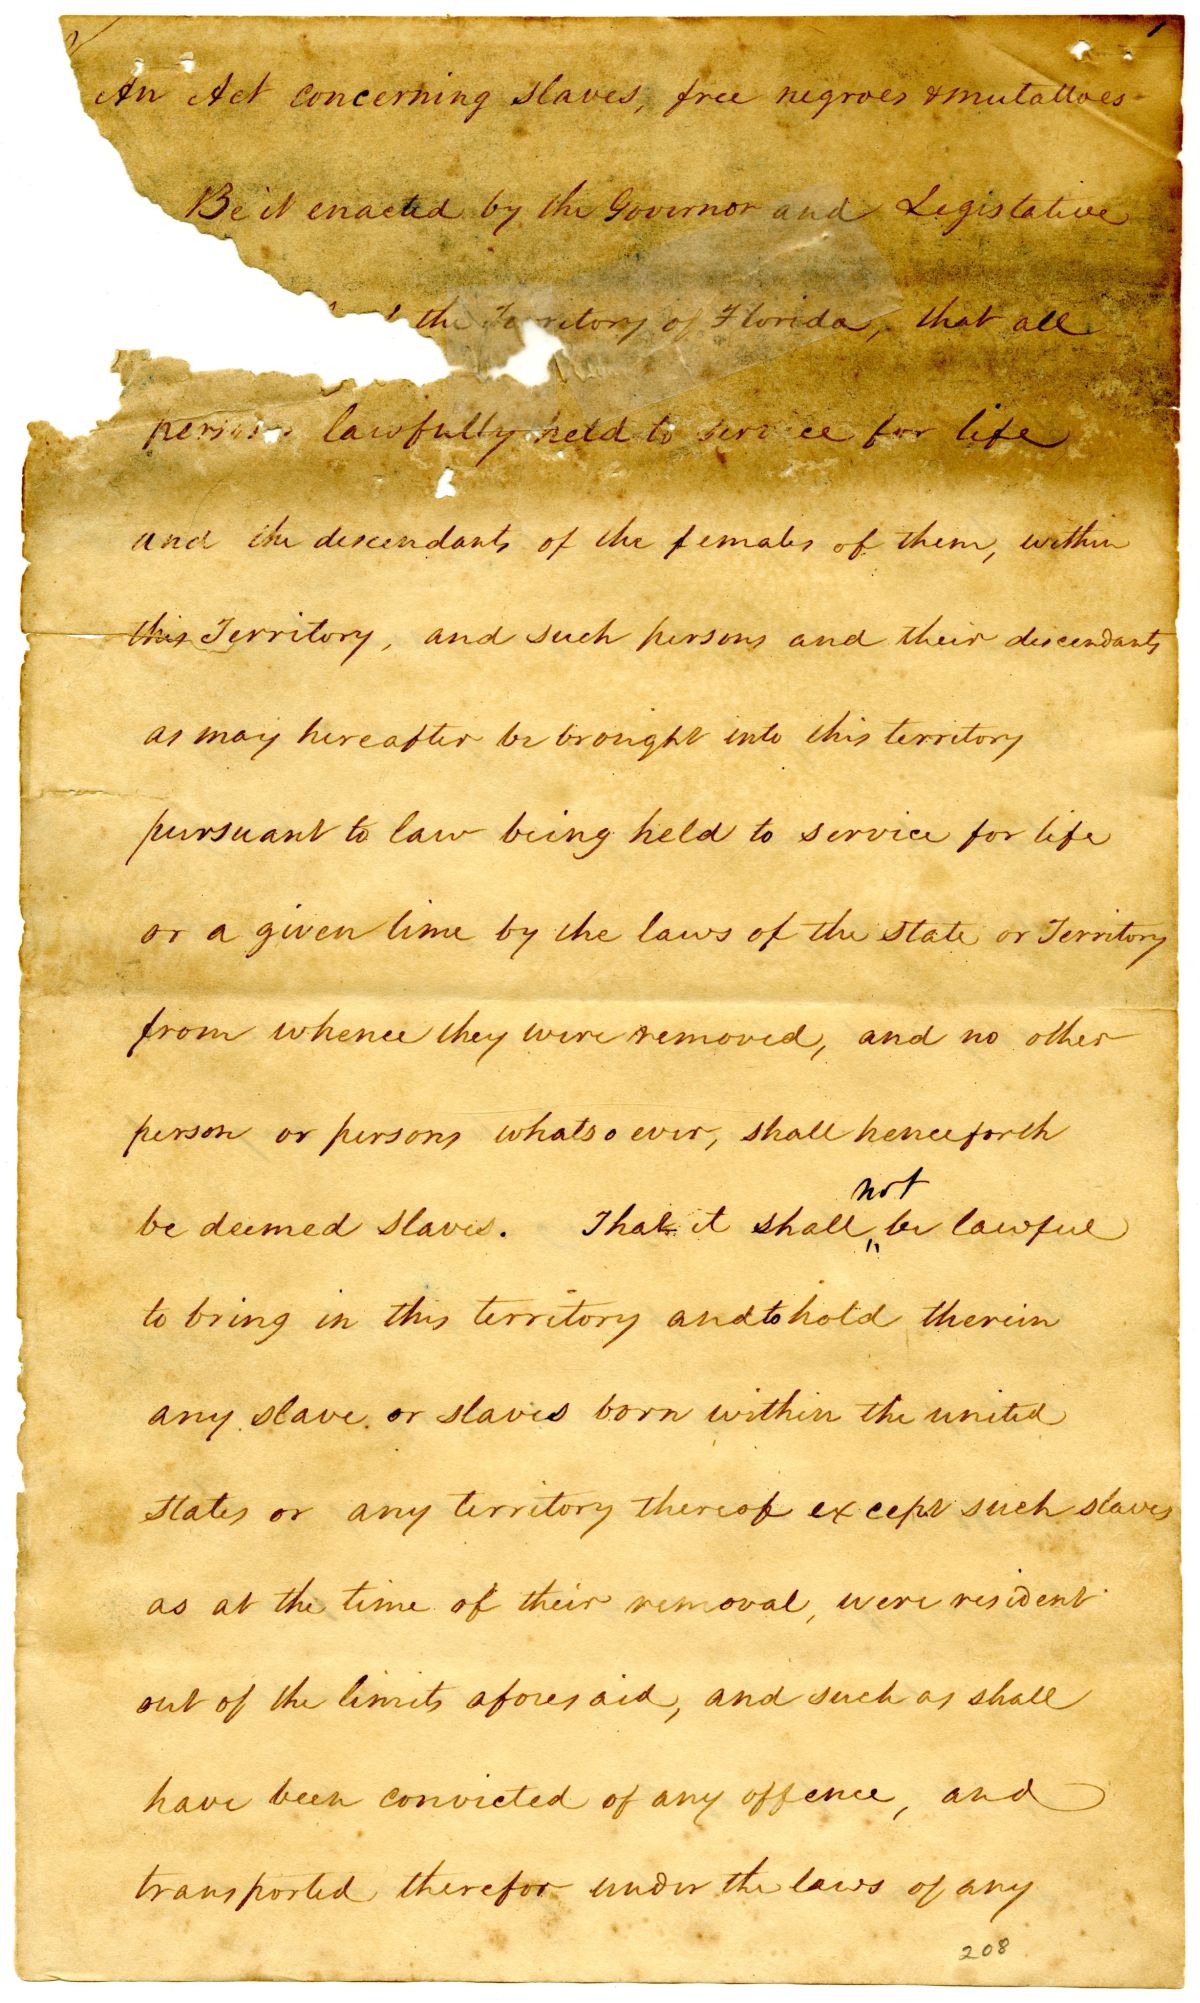 An Act concerning slaves, free negroes & mulattoes
Be it enacted by the Governor and Legislative
the Territory of Florida, that all
persons lawfully held to service for life
and the descendants of the females of them, within
this Territory, and such persons and their descendants
as may hereafter be brought into this territory
pursuant to law being held to service for life
or a given time by the laws of the State or Territory
from whence they were removed, and no other
person or persons whatsoever, shall henceforth
be deemed slaves. That it shall not be lawful
to bring in this territory and to hold therein
any slave or slaves born within the united
states or any territory thereof except such slaves
as at the time of their removal, were resident
out of the limits aforesaid, and such as shall
have been convicted of any offence, and
transported therefor under the laws of any
208